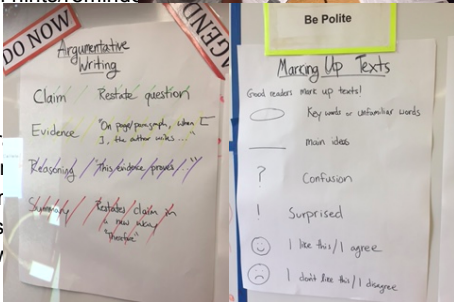 DO NOW
AGENDA
Argumentative
Writing
Claim Restate question
Evidence "On page/paragraph, when
I, the author writes ..."
Reasoning "This evidence proves..."
Summary Restates claim in
a new way
"therefore"
Be Polite
Marking Up Texts
Good readers mark up texts!
Key words or unfamiliar words
main idea
? Confusion
! Surprised
I like this/I agree
I don't like this/I disagree